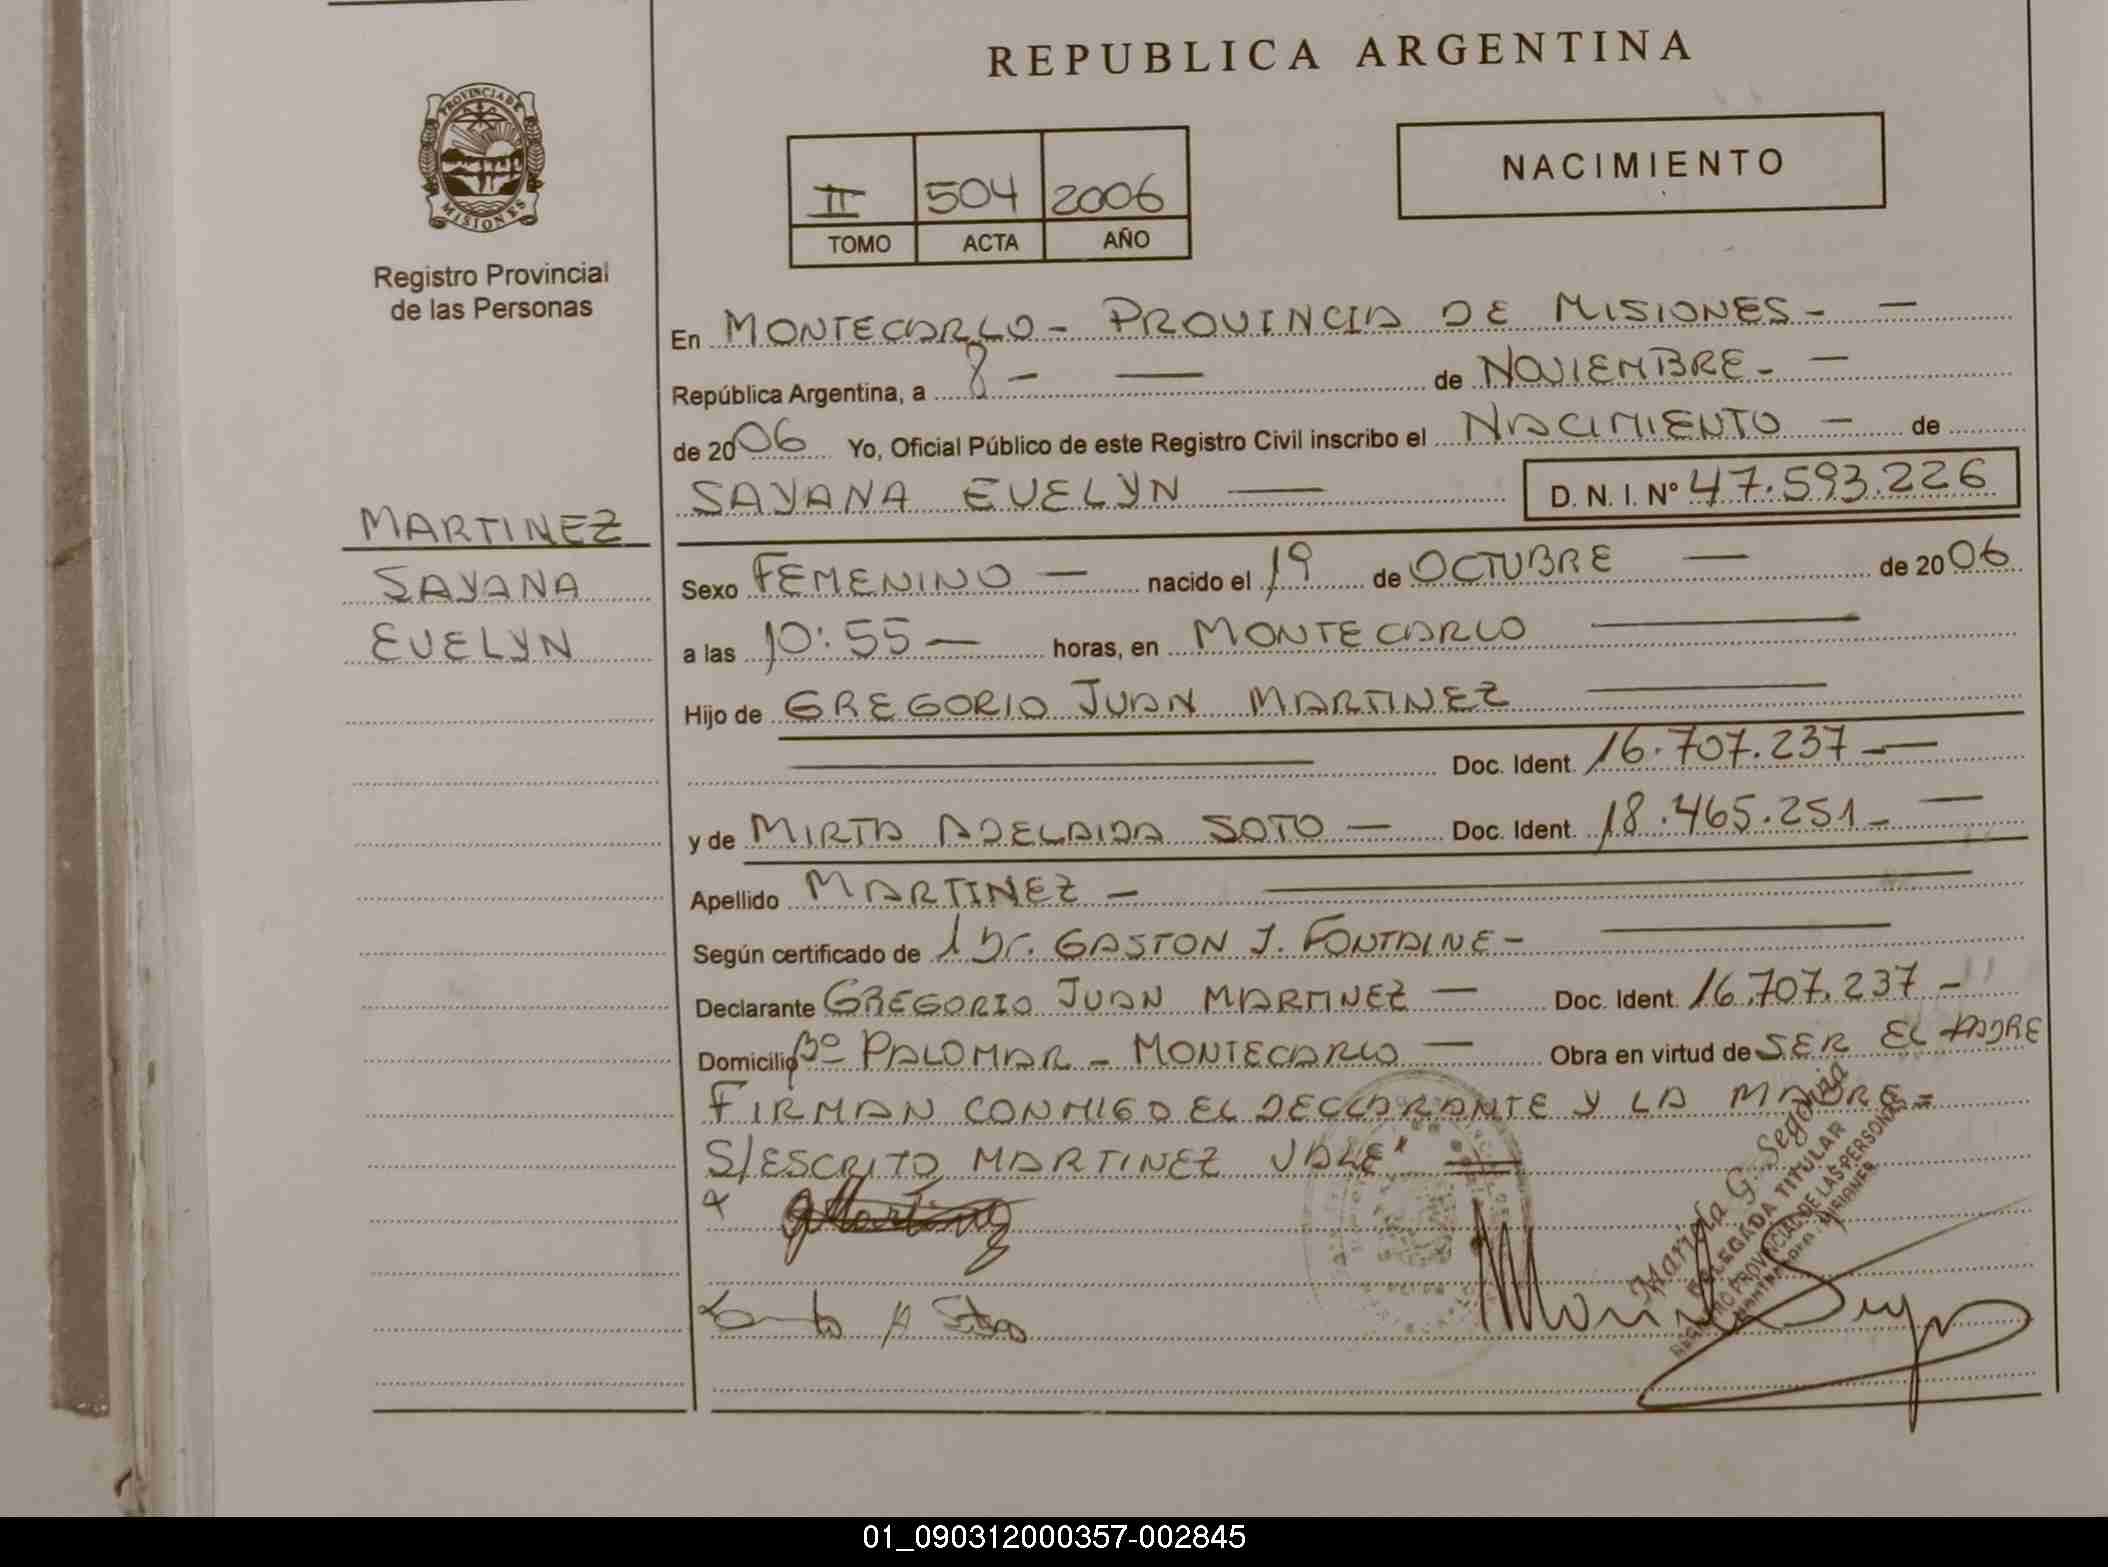 REPUBLICA ARGENTINA
PROVINCIA DE
MISIONES
Registro Provincial
de las Personas
II 504 2006
TOMO ACTA AÑO
NACIMIENTO
En MONTECARLO - PROVINCIA DE MISIONES - —
República Argentina, a 8 - — de NOVIEMBRE - —
de 2006 Yo, Oficial Público de este Registro Civil inscribo el NACIMIENTO — de
SAYANA EVELYN — D. N. I. Nº 47.593.226
MARTINEZ
SAYANA
EVELYN
Sexo FEMENINO — nacido el 19 de OCTUBRE — de 2006
a las 10:55 — horas, en MONTECARLO —
Hijo de GREGORIO JUAN MARTINEZ —
— Doc. Ident. 16.707.237 - —
y de MIRTA ADELAIDA SOTO — Doc. Ident. 18.465.251 - —
Apellido MARTINEZ - —
Según certificado de 1 Dr. GASTON J. FONTAINE - —
Declarante GREGORIO JUAN MARTINEZ — Doc. Ident. 16.707.237 -
Domicilio Bº PALOMAR - MONTECARLO — Obra en virtud de SER EL PADRE
FIRMAN CONMIGO EL DECLARANTE Y LA MADRE =
S/ESCRITO MARTINEZ VALE
Mariela G. Segovia
DELEGADA TITULAR
REGISTRO PROVINCIAL DE LAS PERSONAS
01_090312000357-002845